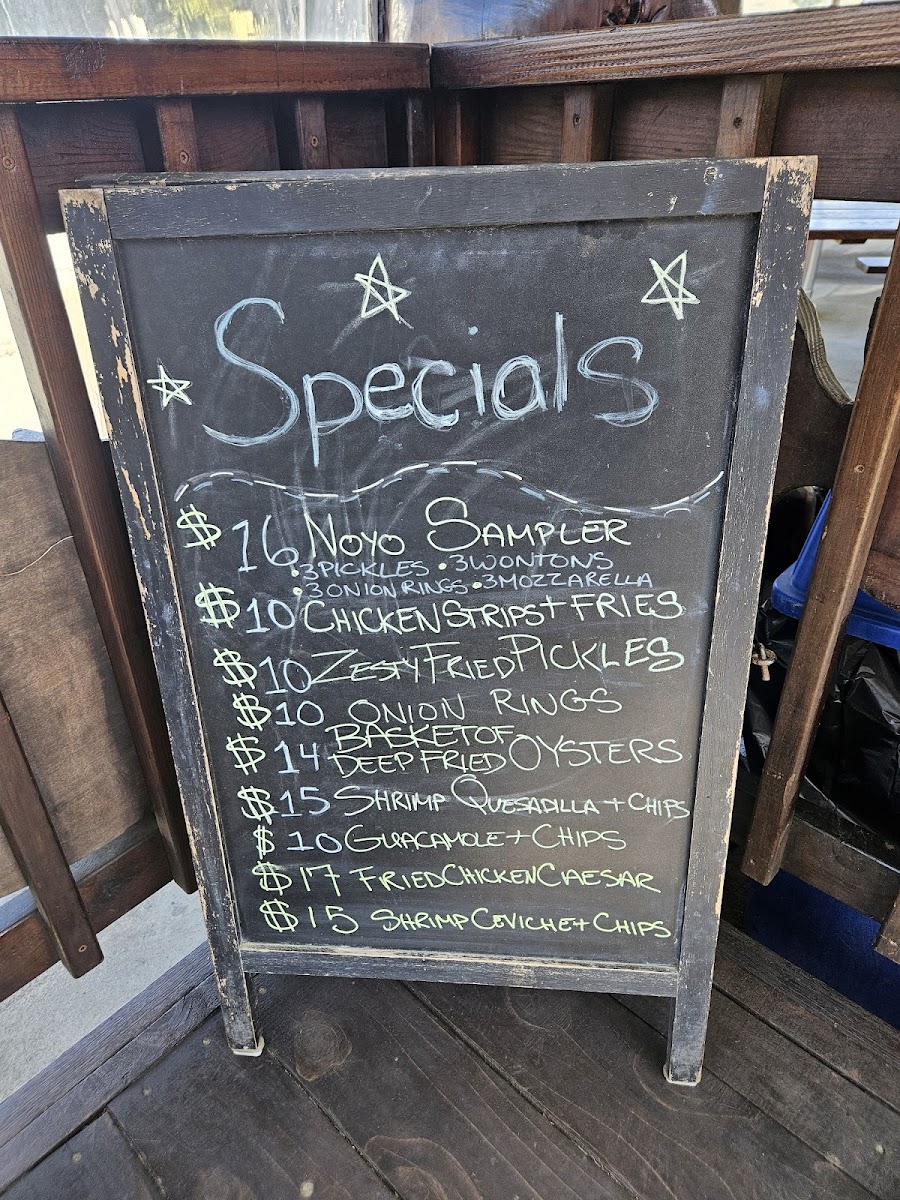 Specials
$16 NOYO SAMPLER
• 3 PICKLES • 3 WONTONS
• 3 ONION RINGS • 3 MOZZARELLA
$10 CHICKEN STRIPS + FRIES
$10 ZESTY FRIED PICKLES
$10 ONION RINGS
$14 BASKET OF
DEEP FRIED OYSTERS
$15 SHRIMP QUESADILLA + CHIPS
$10 GUACAMOLE + CHIPS
$17 FRIED CHICKEN CAESAR
$15 SHRIMP CEVICHE + CHIPS